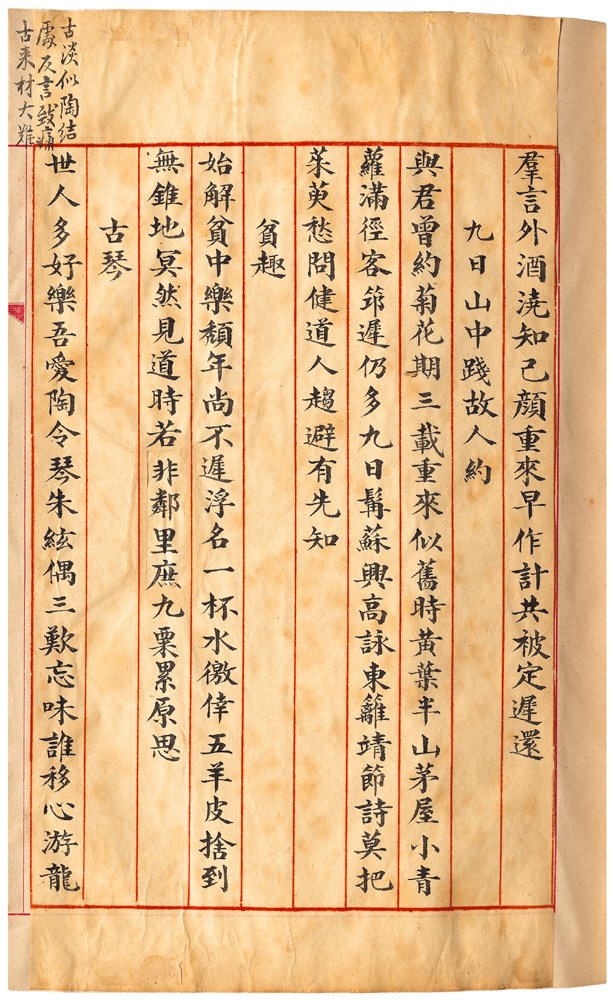 羣言外酒澆知己顔重來早作計共被定遲還
九日山中踐故人約
與君曾約菊花期三載重來似舊時黃葉半山茅屋小青
蘿滿徑客筇遲仍多九日髯蘇興高詠東籬靖節詩莫把
茱萸愁問健道人趨避有先知
貧趣
始解貧中樂頹年尚不遲浮名一杯水徼倖五羊皮捨到
無錐地冥然見道時若非鄰里庶九粟累原思
古琴
世人多好樂吾愛陶令琴朱絃偶三歎忘味誰移心游龍
古淡似陶結
處反言致痛
古来材大難